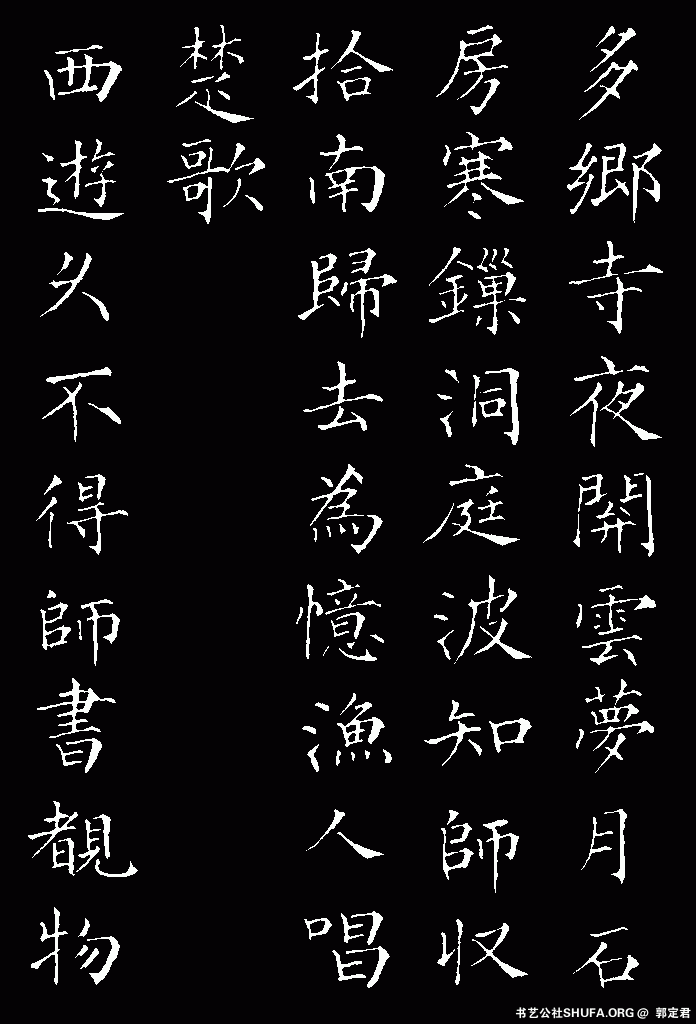 多鄉寺夜開雲夢月石
房寒鏁洞庭波知師収
拾南歸去為憶漁人唱
楚歌
西遊久不得師書覩物
书艺公社SHUFA.ORG @ 郭定君